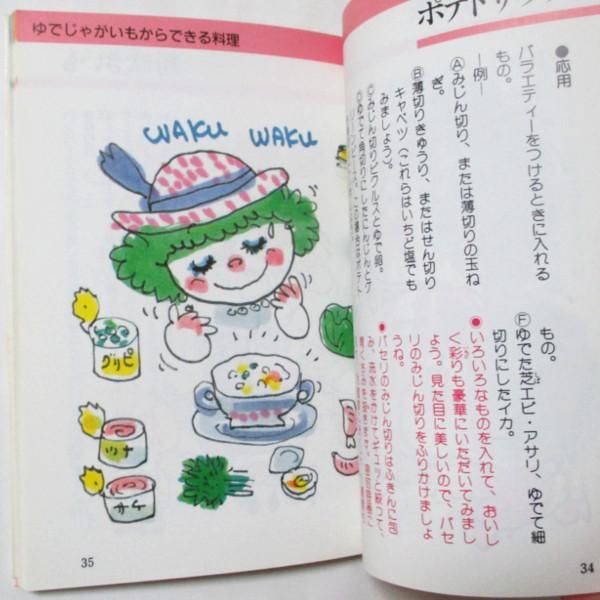 ポテトサラ
●応用
バラエティーをつけるときに入れる
もの。
―例―
Ⓐみじん切り、または薄切りの玉ね
ぎ。
Ⓑ薄切りきゅうり、またはせん切り
キャベツ（これらはいちど塩でも
みましょう）。
Ⓒみじん切りピクルスとゆで卵。
Ⓓゆでて角切りにしたにんじんとグ
もの。
Ⓕゆでた芝エビ・アサリ、ゆでて細
切りにしたイカ。
●いろいろなものを入れて、おいし
く彩りも豪華にいただいてみまし
ょう。見た目に美しいので、パセ
リのみじん切りをふりかけましょ
うね。
●パセリのみじん切りはふきんに包
み、流水をかけてギュッと絞って、
34
ゆでじゃがいもからできる料理
WAKU WAKU
グリピ
ツナ
サケ
35